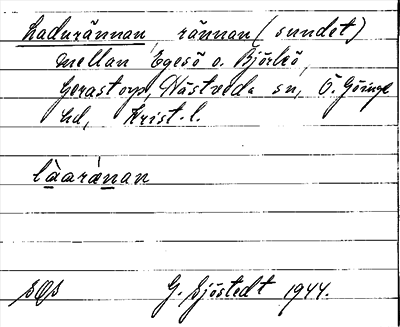 Ladurännan, rännan (sundet)
mellan Egesö o. Björkö,
Gerastorp, Nästveda sn, Ö. Göinge
hd, Krist. l.
låaränan
SOS G. Sjöstedt 1944.